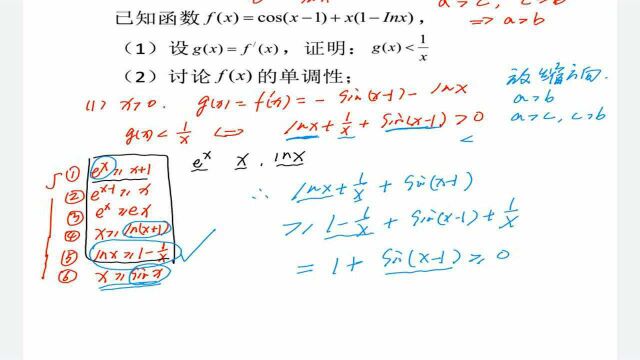 a>c, c>b
已知函数 f(x)=cos(x−1)+x(1−Inx), ⟹ a>b
(1) 设 g(x)=f′(x), 证明: g(x)<1/x
(2) 讨论 f(x) 的单调性;
放缩方向.
a>b
a>c, c>b
<
(1) x>0. g(x)=f′(x)=−sin(x−1)−lnx
g(x)<1/x ⟺ lnx+1/x+sin(x−1)>0
e^x x . lnx
① e^x≥x+1
② e^(x−1)≥x
③ e^x≥ex
④ x≥ln(x+1)
⑤ lnx≥1−1/x ✓
⑥ x≥sinx
∴ lnx+1/x+sin(x−1)
≥1−1/x+sin(x−1)+1/x
=1+sin(x−1)≥0